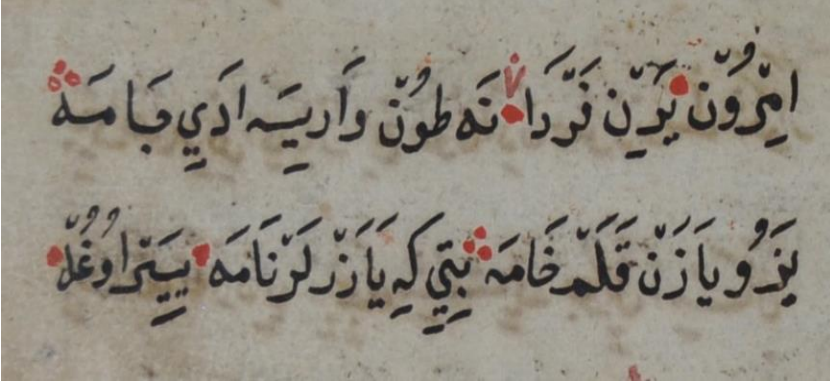 امِّرُوُنّ يَرِّنِ نَرَّدَا نَه طوُنّ وَارِيسَه ادَيِ جَامَه
يَزَرُو يَازَنْ قَلَمْ خَامَه بِتِيِ كِه يَازَرْلَرْ نَامَه يِيَتِرْ اوُغُلْ